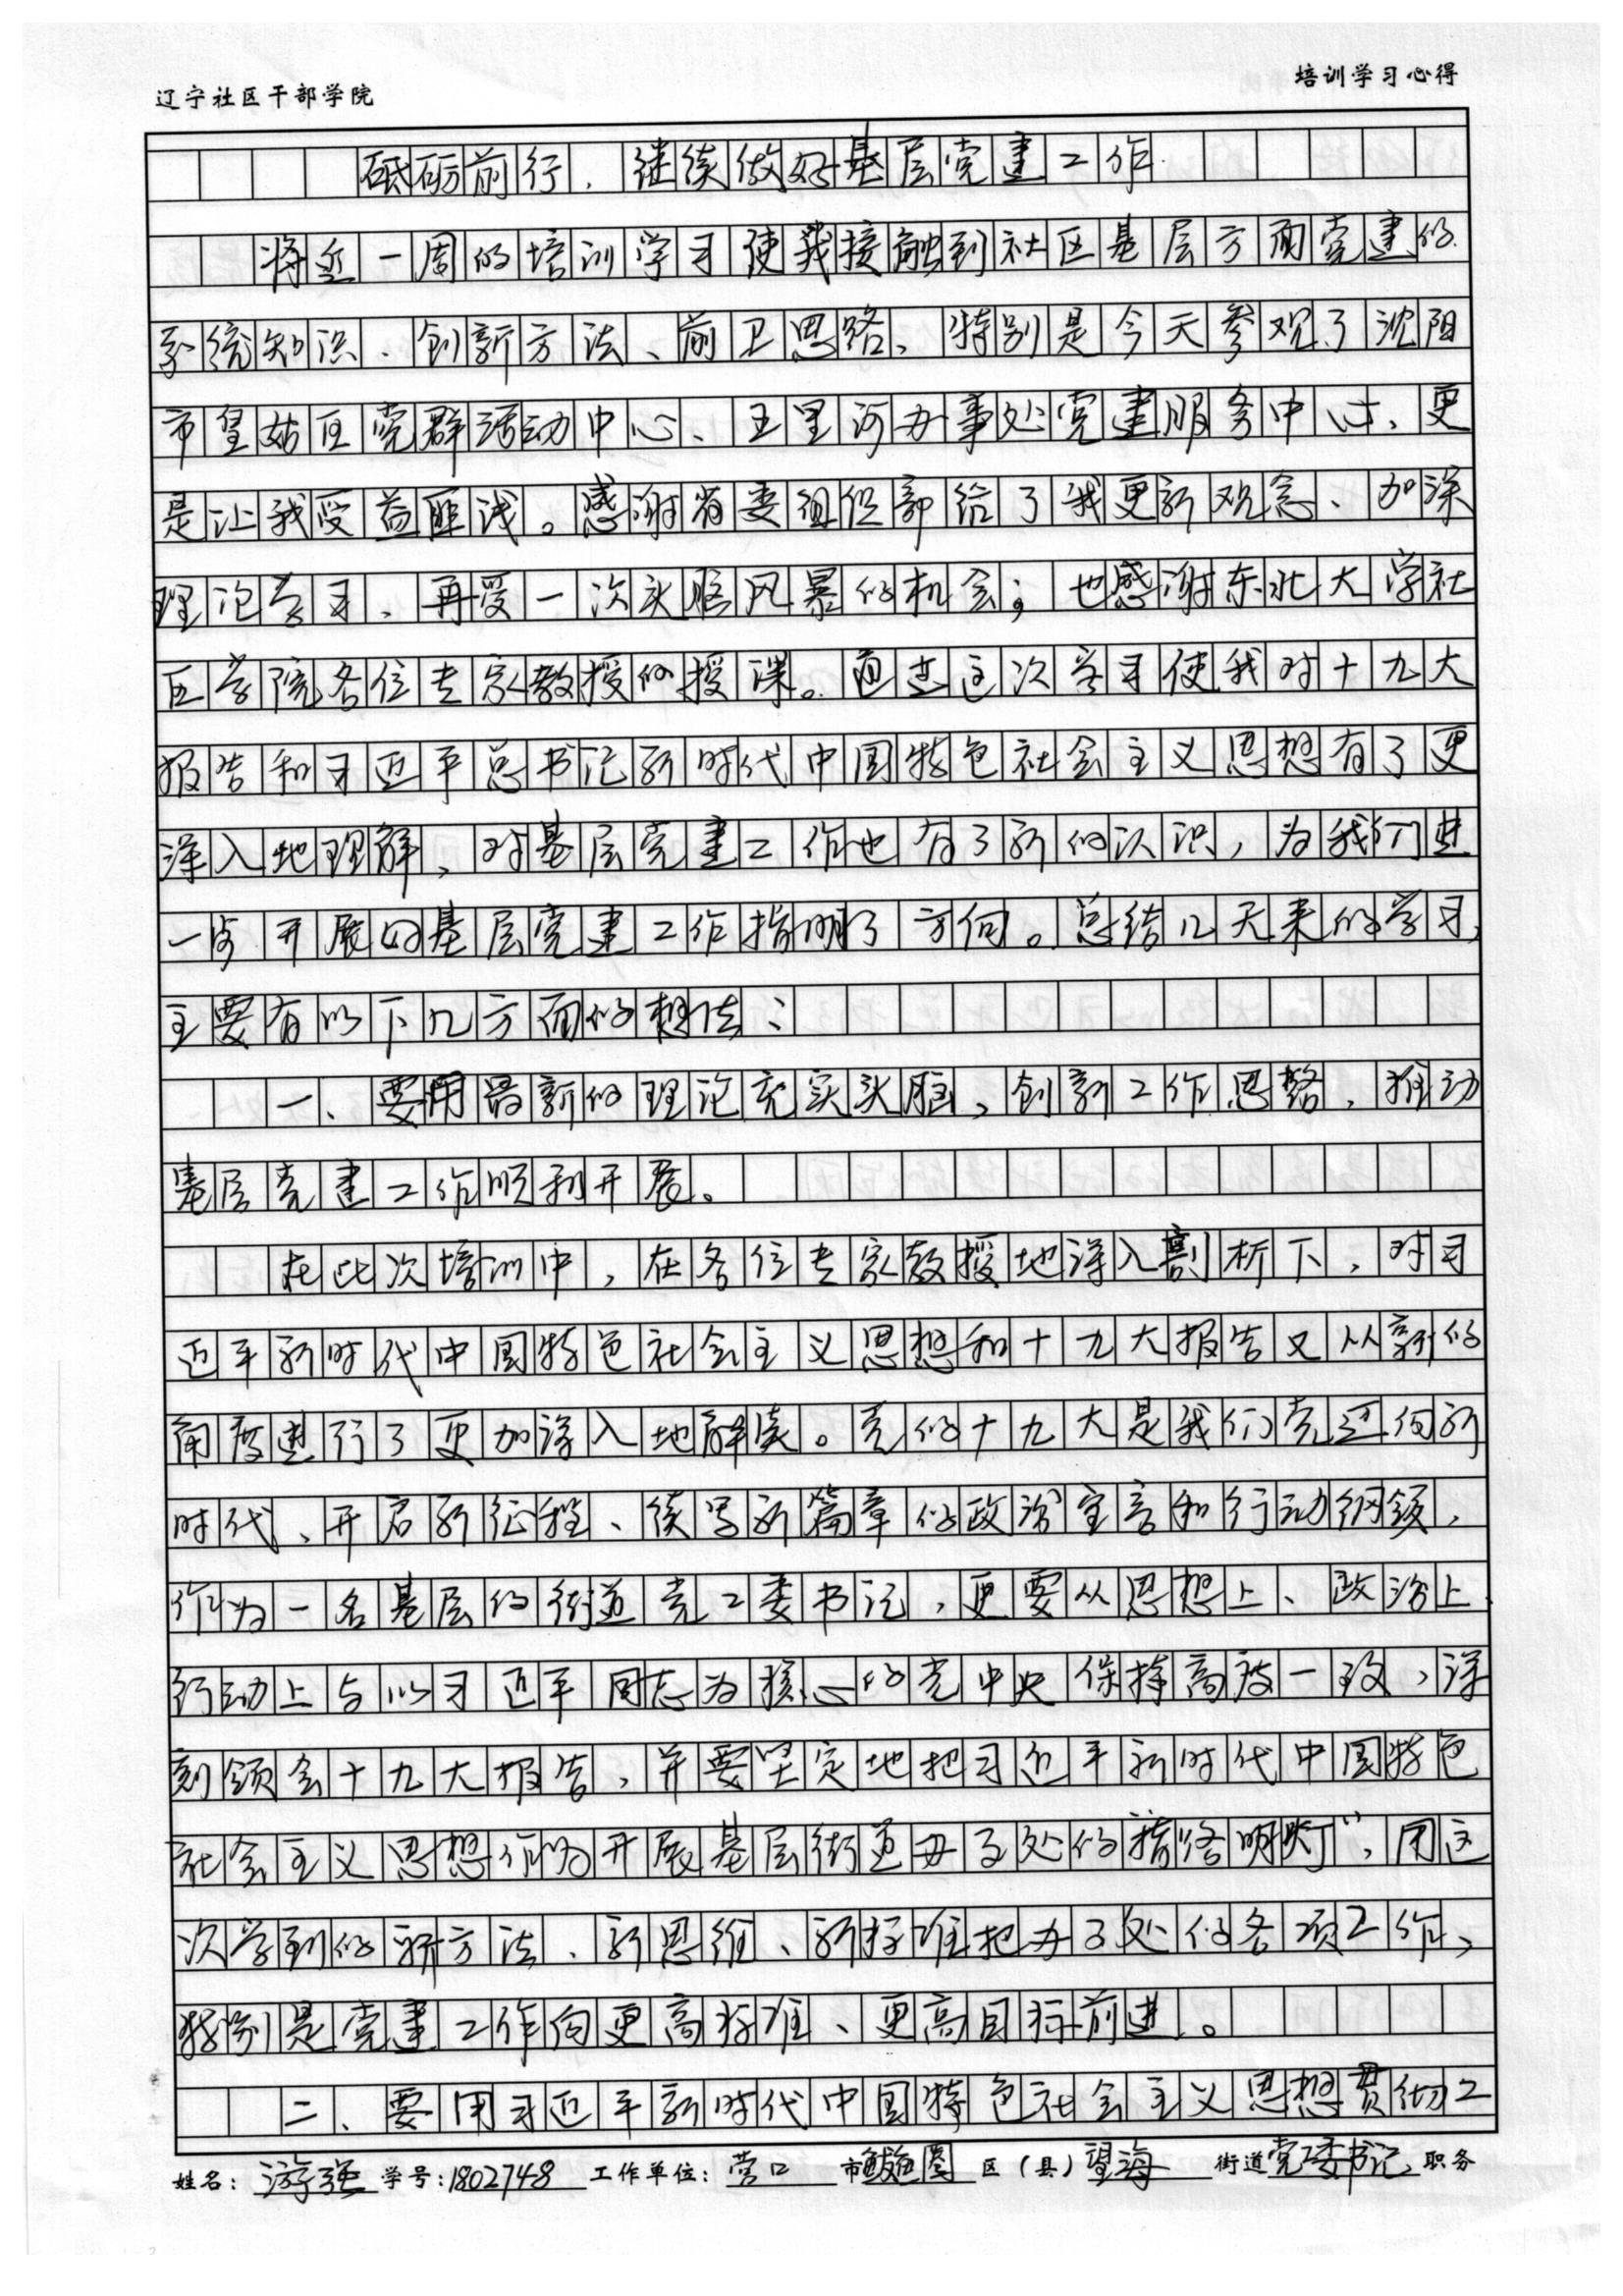 辽宁社区干部学院
培训学习心得
砥砺前行，继续做好基层党建工作
将近一周的培训学习使我接触到社区基层方面党建的
系统知识、创新方法、前卫思路，特别是今天参观了沈阳
市皇姑区党群活动中心、五里河办事处党建服务中心，更
是让我受益匪浅。感谢省委组织部给了我更新观念、加深
理论学习，再受一次头脑风暴的机会；也感谢东北大学社
区学院各位专家教授的授课。通过这次学习使我对十九大
报告和习近平总书记新时代中国特色社会主义思想有了更
深入地理解，对基层党建工作也有了新的认识，为我们进
一步开展好基层党建工作指明了方向。总结几天来的学习，
主要有以下几方面的想法：
一、要用最新的理论充实头脑，创新工作思路，推动
基层党建工作顺利开展。
在此次培训中，在各位专家教授地深入剖析下，对习
近平新时代中国特色社会主义思想和十九大报告又从新的
角度进行了更加深入地解读。党的十九大是我们党迈向新
时代、开启新征程、续写新篇章的政治宣言和行动纲领，
作为一名基层的街道党工委书记，更要从思想上、政治上、
行动上与以习近平同志为核心的党中央保持高度一致，深
刻领会十九大报告，并要坚定地把习近平新时代中国特色
社会主义思想作为开展基层街道办事处的“指路明灯”，用这
次学到的新方法、新思维、新标准把办事处的各项工作，
特别是党建工作向更高标准、更高目标前进。
二、要用习近平新时代中国特色社会主义思想贯彻工
姓名：游强 学号：1802748 工作单位：营口 市 鲅鱼圈 区（县）望海 街道 党工委书记 职务